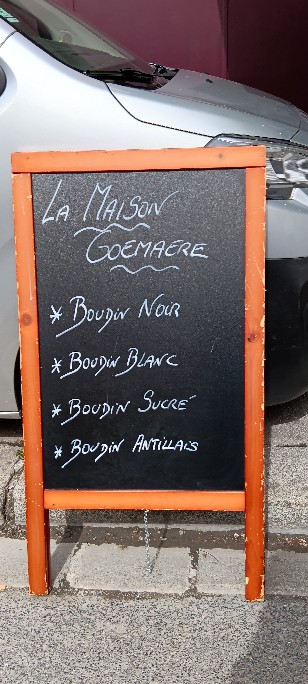 La Maison
Goemaere
* Boudin Noir
* Boudin Blanc
* Boudin Sucré
* Boudin Antillais